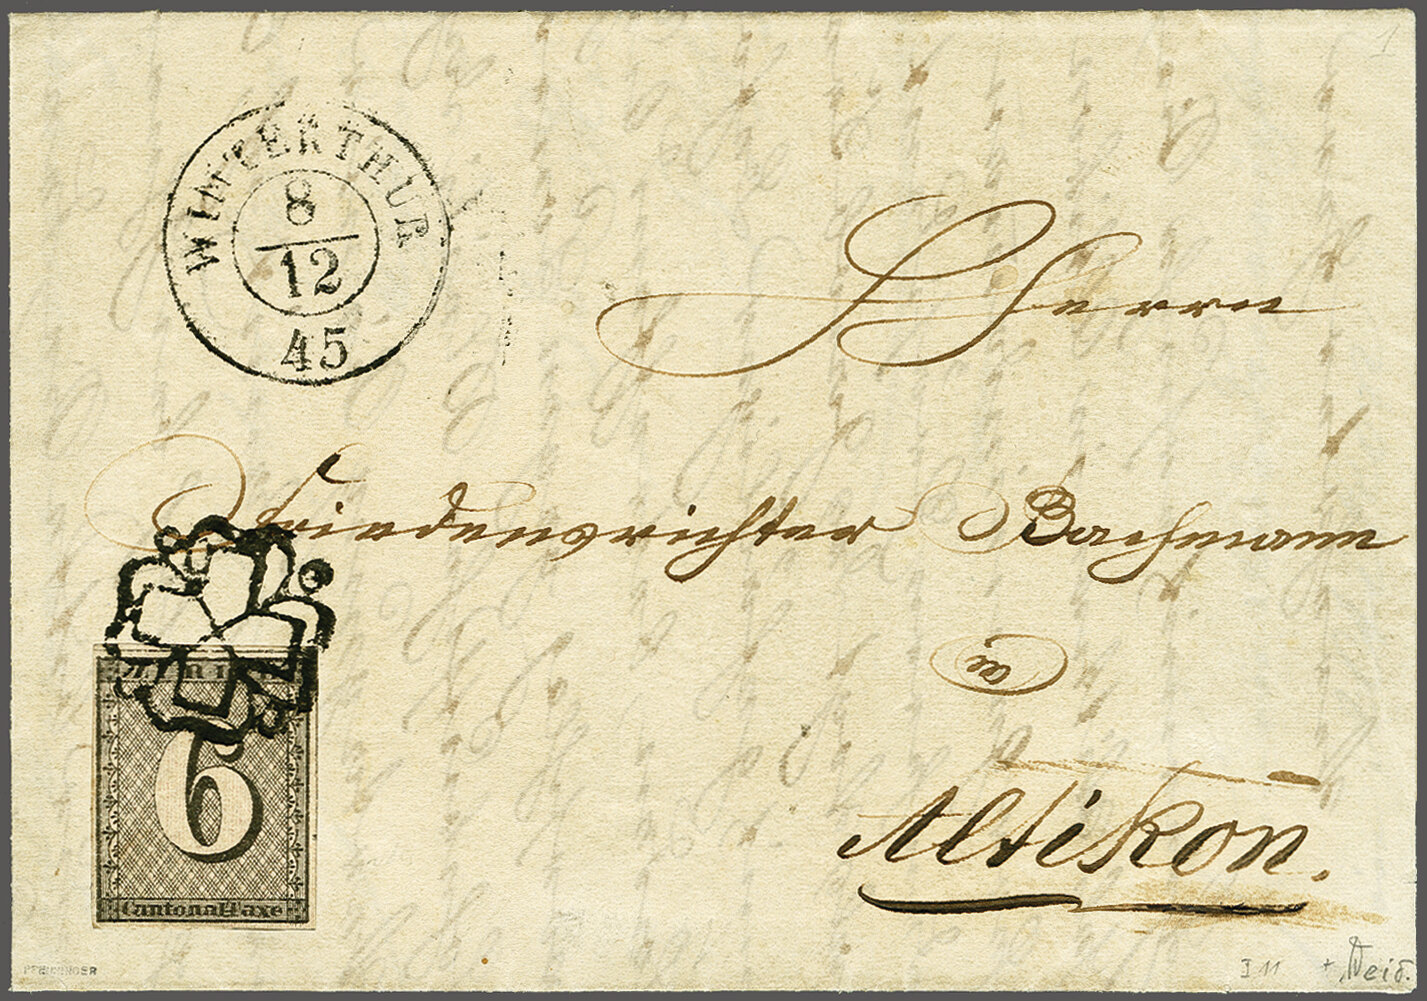 1
WINTERTHUR
8
12
45
Herrn
Friedensrichter Bachmann
in
Altikon.
6
Cantonal-Taxe
I 11